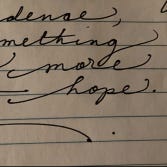 dence,
mething
more
hope.